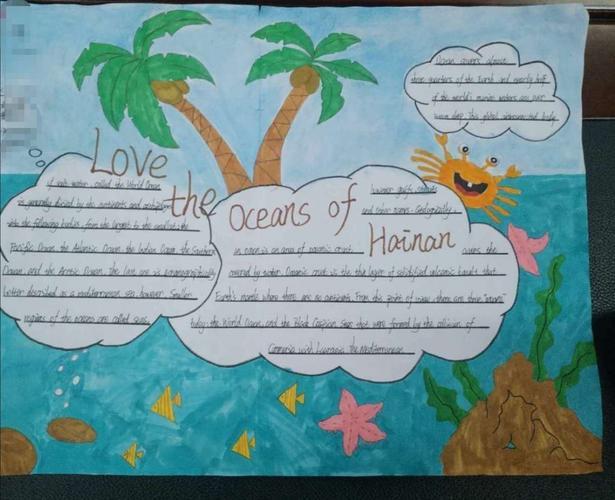 Love
the
Oceans of
Hainan
Ocean covers almost
three quarters of the Earth and nearly half
of the world's marine waters are over
deep this global interconnected body
of salt water called the World Ocean
is generally divided by the continents and
with the following bodies, from the largest to the smallest: the
Pacific Ocean, the Atlantic Ocean, the Indian Ocean, the Southern
Ocean, and the Arctic Ocean, the
better described as a mediterranean sea, however. Smaller
regions of the oceans are called seas,
however gulfs, straits
and other names. Geologically,
an ocean is an area of oceanic crust
covered by water. Oceanic crust is the thin layer of solidified volcanic basalt that
covers the
Earth's mantle where there are no continents. From this point of view, there are three "oceans"
today: the World Ocean, and the Black Caspian Seas that were formed by the collision of
with Laurasia. The Mediterranean